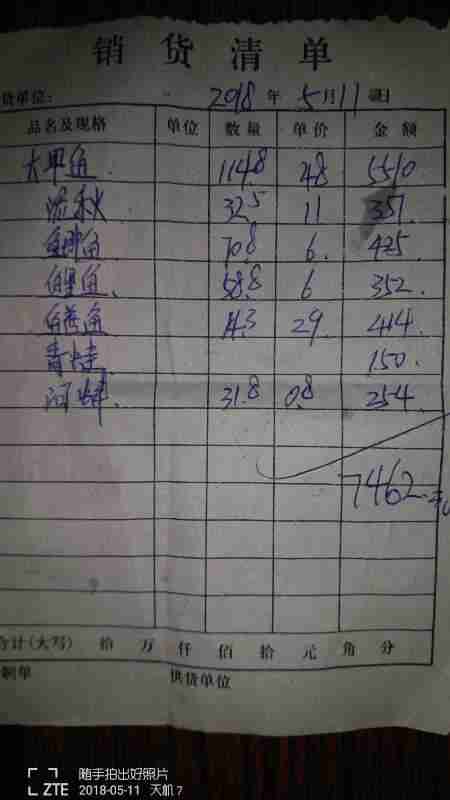 销货清单
货单位: 2018 年 5 月 11 日
品名及规格 单位 数量 单价 金额
大甲鱼 114.8 48 5510
泥秋 32.5 11 357.
鱼 70.8 6. 425.
鱼 58.8 6 352.
鱼 14.3 29. 414.
青 150.
河蚌. 31.8 0.8 254.
7462.
合计(大写) 拾 万 仟 佰 拾 元 角 分
制单 供货单位
随手拍出好照片
ZTE 2018-05-11 天机 7